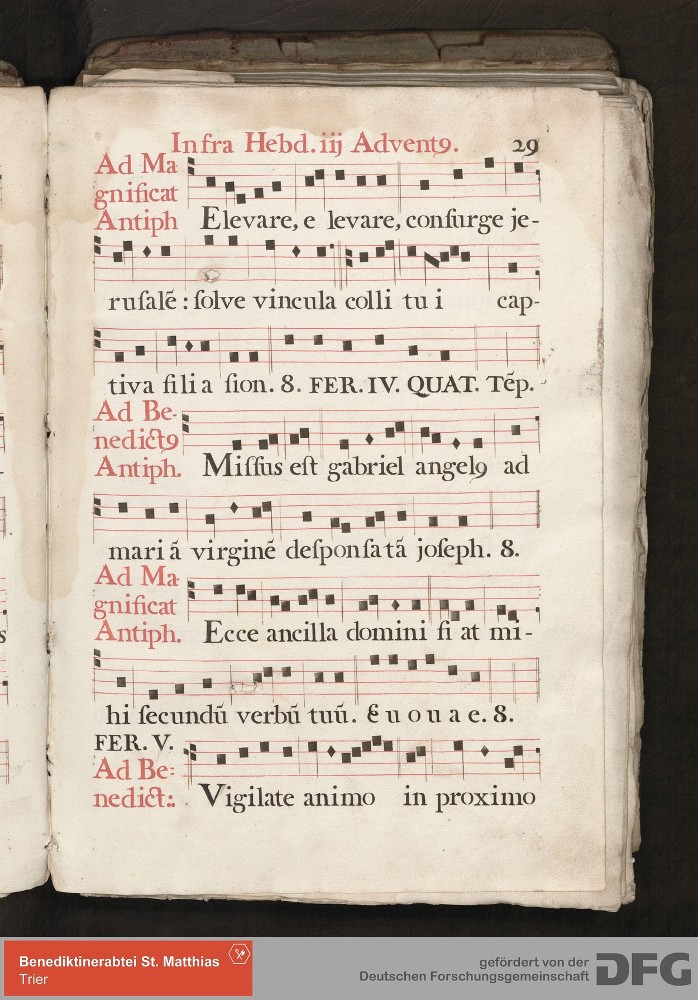 Infra Hebd. iij Advent9. 29
Ad Ma
gnificat
Antiph Elevare, e levare, conſurge je-
ruſalē : ſolve vincula colli tu i cap-
tiva fili a ſion. 8. FER. IV. QUAT. Tēp.
Ad Be-
nedict9
Antiph. Miſſus eſt gabriel angel9 ad
mari ā virginē deſponſa tā joſeph. 8.
Ad Ma
gnificat
Antiph. Ecce ancilla domini fi at mi-
hi ſecundū verbū tuū. E u o u a e. 8.
FER. V.
Ad Be:
nedict:. Vigilate animo in proximo
Benediktinerabtei St. Matthias
Trier
gefördert von der
Deutschen Forschungsgemeinschaft DFG